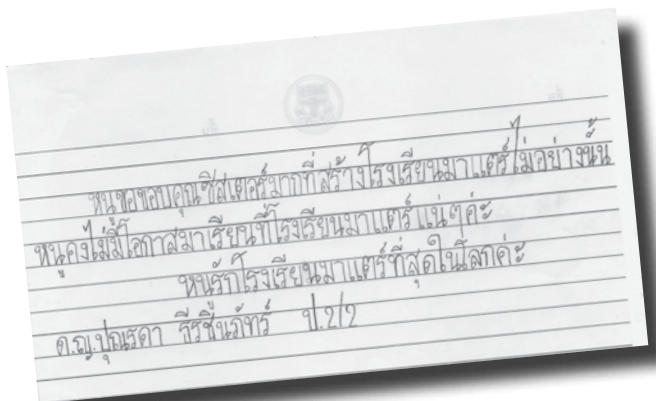 หนูขอขอบคุณซิสเตอร์มากที่สร้างโรงเรียนมาแตร์ไม่อย่างนั้น
หนูคงไม่มีโอกาสมาเรียนที่โรงเรียนมาแตร์แน่ๆค่ะ
หนูรักโรงเรียนมาแตร์ที่สุดในโลกค่ะ
ด.ญ.ปุณรดา ธีรชินภัทร์ ป.2/2